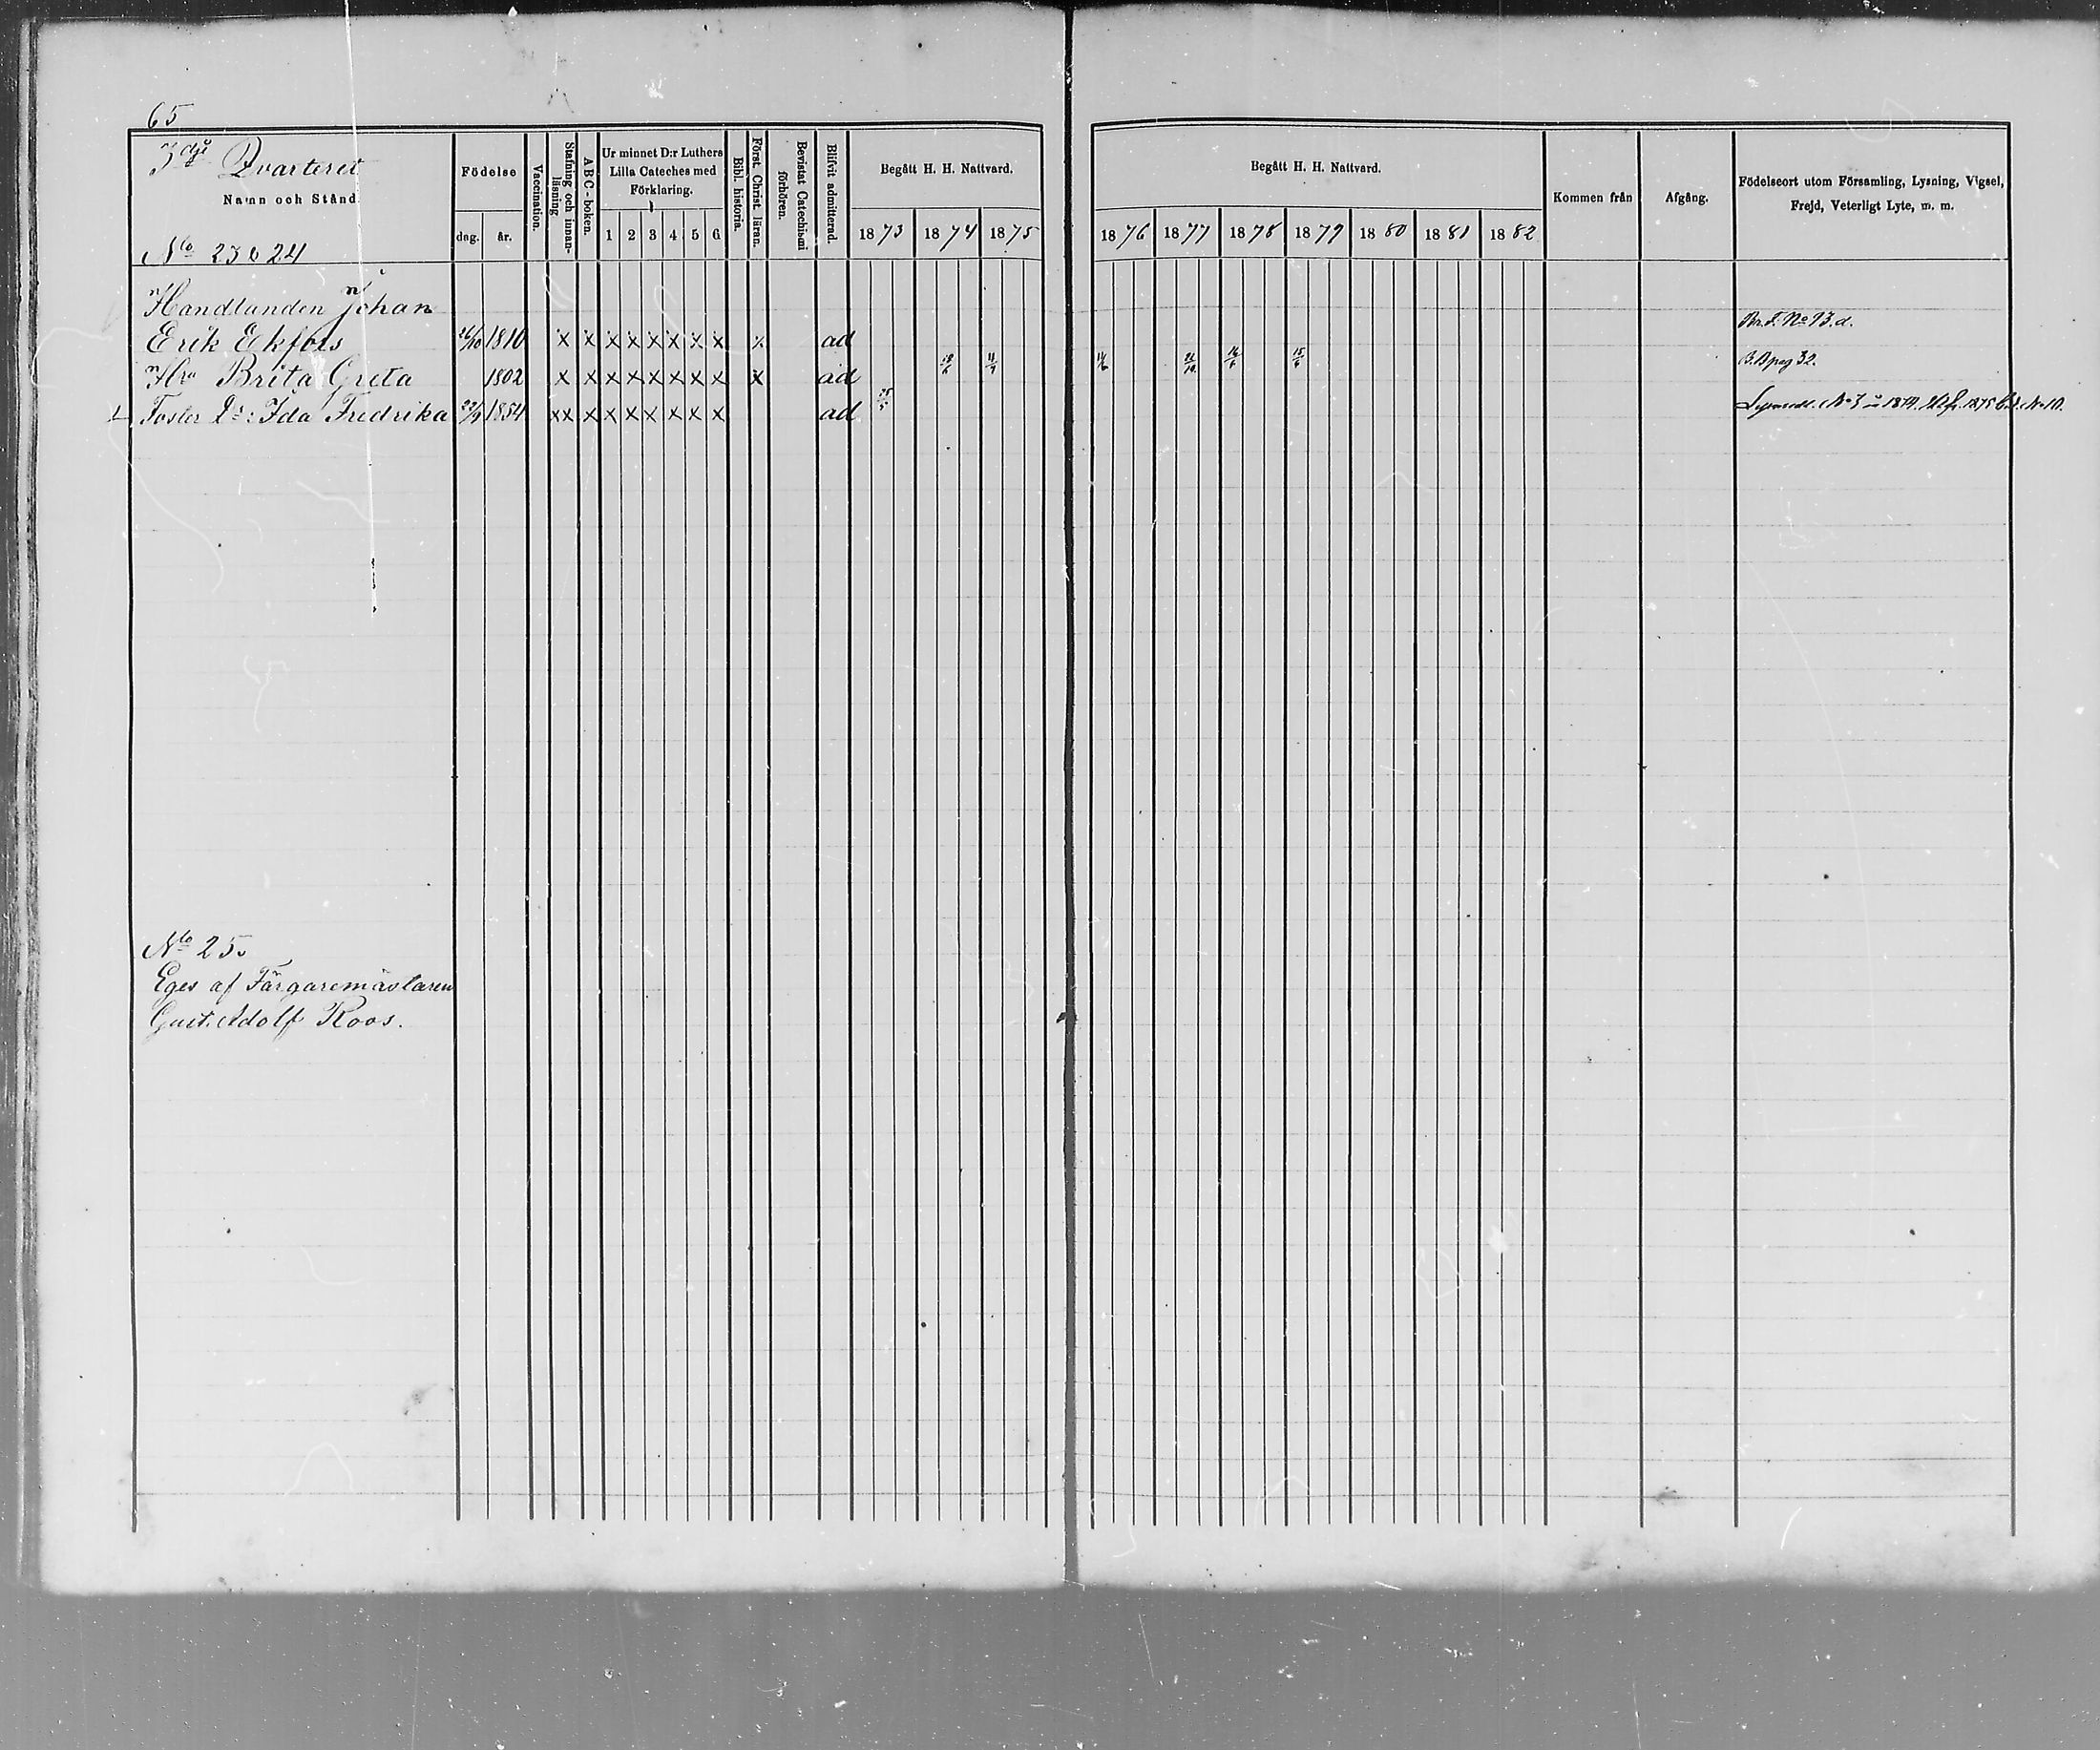 65
3dje Qvarteret
Namn och Stånd.
No 23 o 24
Födelse
dag. år.
Vaccination.
Stafning och innanläsning
ABC-boken.
Ur minnet D:r Luthers
Lilla Cateches med
Förklaring.
1 2 3 4 5 6
Bibl. historia.
Först. Christ. läran.
Bevistat Catechismi
förhören.
Blifvit admitterad.
Begått H. H. Nattvard.
1873 1874 1875
Begått H. H. Nattvard.
1876 1877 1878 1879 1880 1881 1882
Kommen från
Afgång.
Födelseort utom Församling, Lysning, Vigsel,
Frejd, Veterligt Lyte, m. m.
Handlanden Johan
Erik Ekfors 26/10 1810 x x x x x x x x x ad Br. F. No 13. d.
Hru Brita Greta 1802 x x x x x x x x x ad 11/6 16/6 15/6 B. B pag 32.
Foster D:r Ida Fredrika 22/9 1854 xx x x x x x x x ad 25/5
No 25.
Eges af Färgaremästaren
Gust. Adolf Roos.